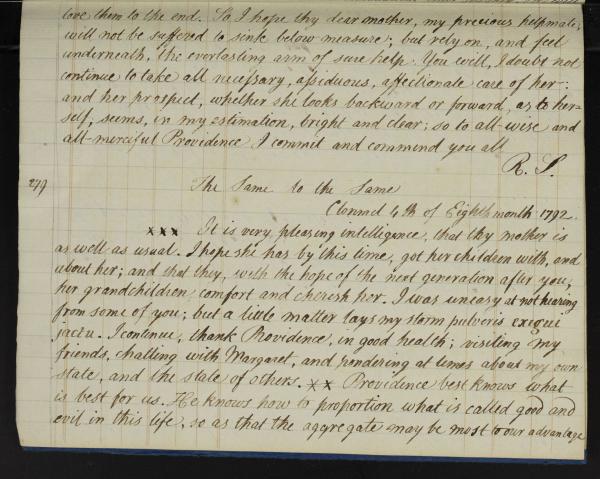 love them to the end. So I hope thy dear mother, my precious helpmate,
will not be suffered to sink below measure; but rely on, and feel
underneath, the everlasting arm of sure help. You will, I doubt not
continue to take all necessary, assiduous, affectionate care of her:
and her prospect, whether she looks backward or forward, as to her=
self, seems, in my estimation, bright and clear; so to all-wise and
all-merciful Providence I commit and commend you all
R. S.
279
The Same to the Same
Clonmel 4th of Eighth month 1792.
xxx It is very pleasing intelligence, that thy mother is
as well as usual. I hope she has by this time, got her children with, and
about her; and that they, with the hope of the next generation after you,
her grandchildren, comfort and cherish her. I was uneasy at not hearing
from some of you; but a little matter lays my storm pulveris exigui
jactu. I continue, thank Providence, in good health; visiting my
friends, chatting with Margaret, and pondering at times about my own
state, and the state of others. xx Providence best knows what
is best for us. He knows how to proportion what is called good and
evil in this life, so as that the aggregate may be most to our advantage